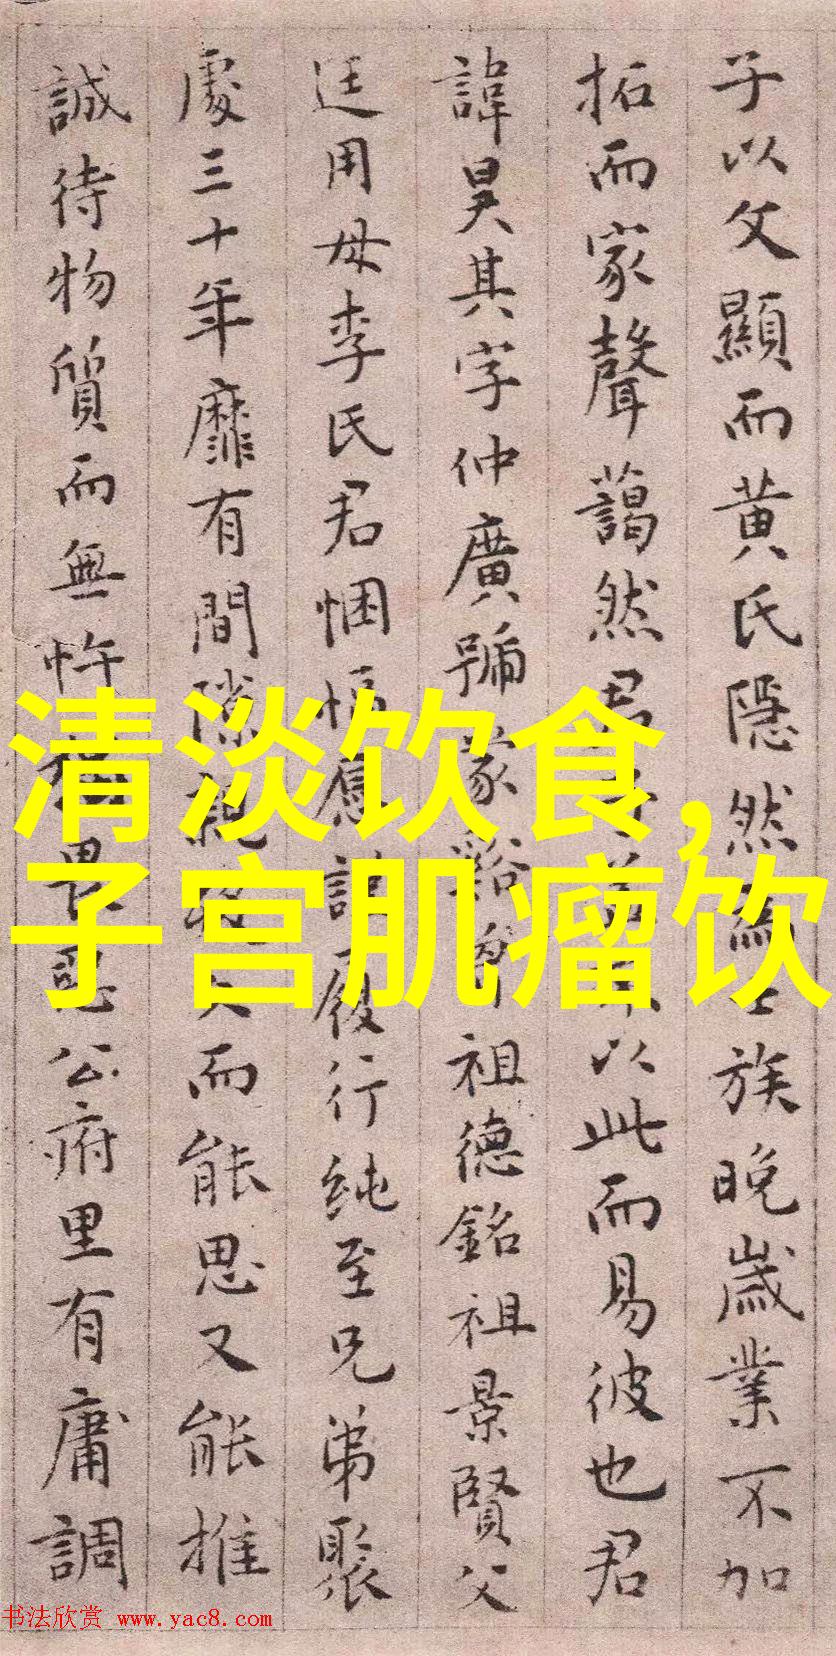 子以父顯而黄氏隱然為士族晚歳業不加
拓而家聲藹然君以此而易彼也君
諱昊其字仲廣號蒙谿祖德銘祖景賢父
廷用母李氏君悃愊應行純至兄弟聚
處三十年靡有間隙親而能思又能推
誠待物質而無忤公府里有庸調
清淡饮食,
子宫肌瘤饮
书法欣赏 www.yac8.com